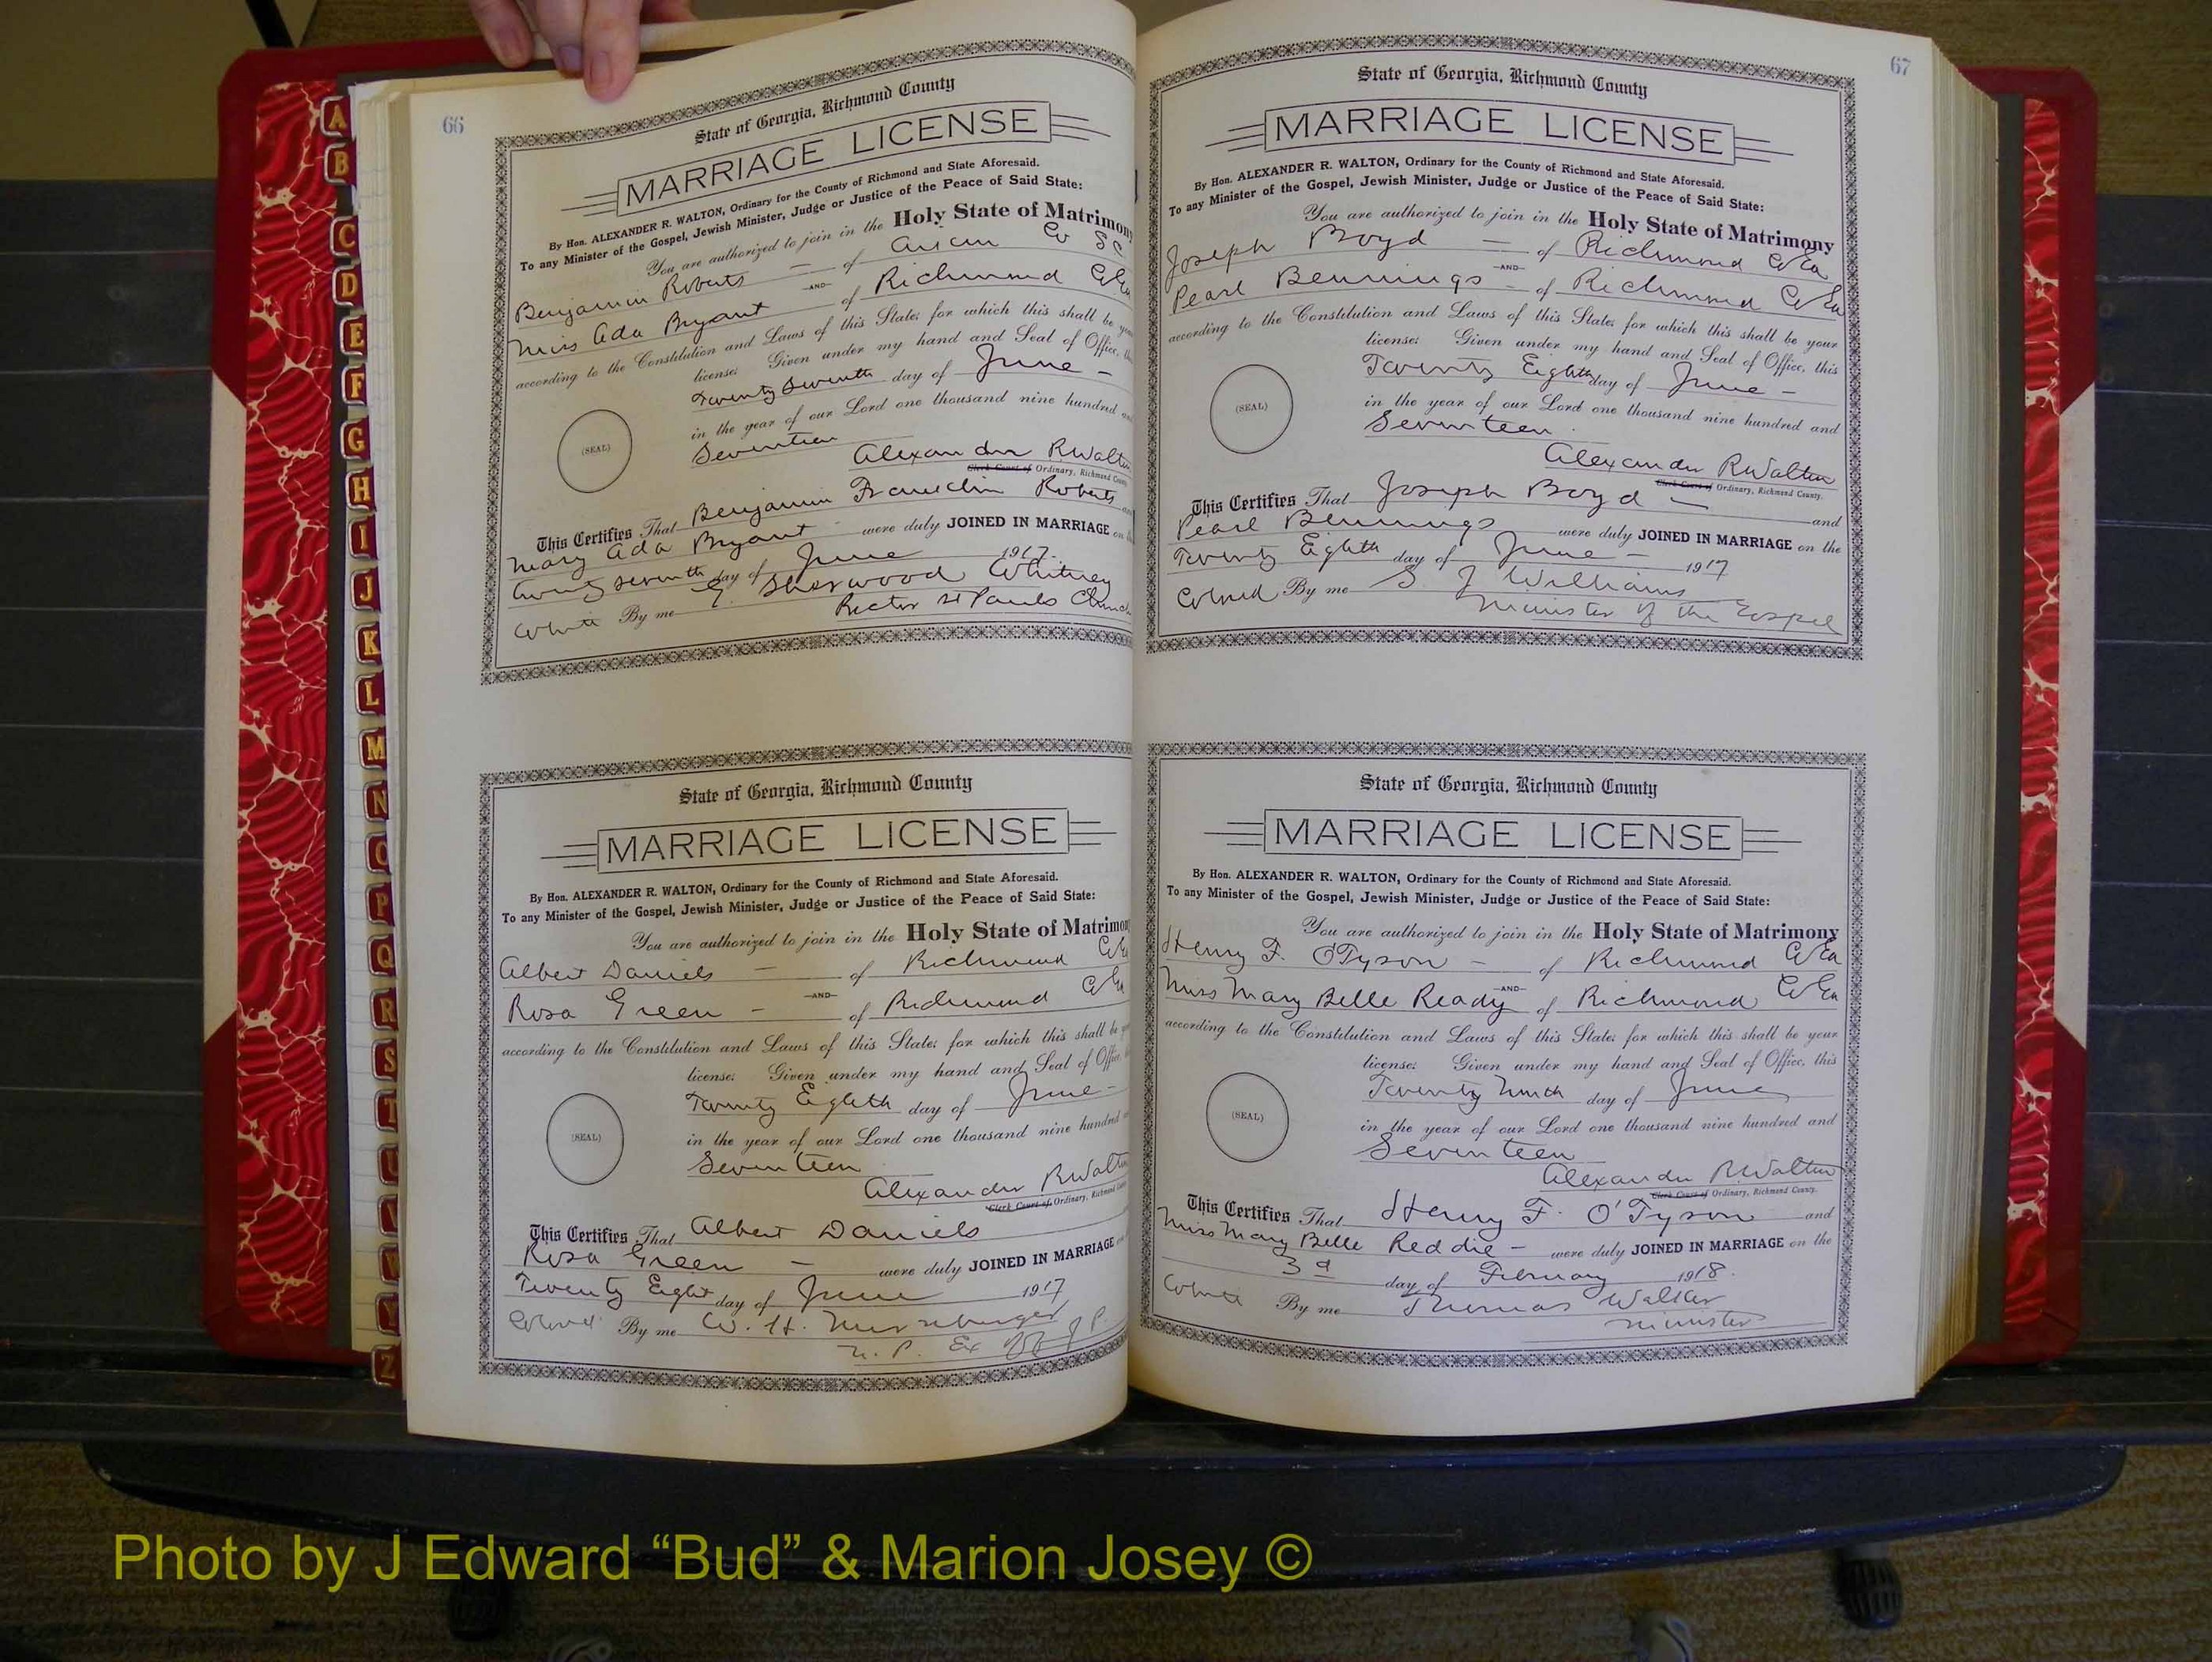 66
State of Georgia, Richmond County
MARRIAGE LICENSE
By Hon. ALEXANDER R. WALTON, Ordinary for the County of Richmond and State Aforesaid.
To any Minister of the Gospel, Jewish Minister, Judge or Justice of the Peace of Said State:
You are authorized to join in the Holy State of Matrimony
Benjamin Roberts — of Aiken Co S C
—AND—
Miss Ada Bryant of Richmond Co Ga
according to the Constitution and Laws of this State; for which this shall be your
license. Given under my hand and Seal of Office, this
Twenty Seventh day of June –
in the year of our Lord one thousand nine hundred and
Seventeen
(SEAL)
Alexander R Walton
Clerk Court of Ordinary, Richmond County.
This Certifies That Benjamin Franklin Roberts and
Mary Ada Bryant were duly JOINED IN MARRIAGE on the
twenty seventh day of June 1917.
White By me G. Sherwood Whitney
Rector St Pauls Church
State of Georgia, Richmond County
MARRIAGE LICENSE
By Hon. ALEXANDER R. WALTON, Ordinary for the County of Richmond and State Aforesaid.
To any Minister of the Gospel, Jewish Minister, Judge or Justice of the Peace of Said State:
You are authorized to join in the Holy State of Matrimony
Albert Daniels — of Richmond Co Ga
—AND—
Rosa Green – of Richmond Co Ga
according to the Constitution and Laws of this State; for which this shall be
license. Given under my hand and Seal of Office,
Twenty Eighth day of June –
in the year of our Lord one thousand nine hundred
Seventeen
(SEAL)
Alexander R Walton
Clerk Court of Ordinary, Richmond County.
This Certifies That Albert Daniels
Rosa Green – were duly JOINED IN MARRIAGE
Twenty Eight day of June 1917
Colored By me W. H.
N. P. Ex Off J P.
67
State of Georgia, Richmond County
MARRIAGE LICENSE
By Hon. ALEXANDER R. WALTON, Ordinary for the County of Richmond and State Aforesaid.
To any Minister of the Gospel, Jewish Minister, Judge or Justice of the Peace of Said State:
You are authorized to join in the Holy State of Matrimony
Joseph Boyd — of Richmond Co Ga
—AND—
Pearl Bennings – of Richmond Co Ga
according to the Constitution and Laws of this State; for which this shall be your
license. Given under my hand and Seal of Office, this
Twenty Eighth day of June –
in the year of our Lord one thousand nine hundred and
Seventeen
(SEAL)
Alexander R Walton
Clerk Court of Ordinary, Richmond County.
This Certifies That Joseph Boyd — and
Pearl Bennings were duly JOINED IN MARRIAGE on the
Twenty Eighth day of June – 1917
Colored By me S. J Williams
Minister of the Gospel
State of Georgia, Richmond County
MARRIAGE LICENSE
By Hon. ALEXANDER R. WALTON, Ordinary for the County of Richmond and State Aforesaid.
To any Minister of the Gospel, Jewish Minister, Judge or Justice of the Peace of Said State:
You are authorized to join in the Holy State of Matrimony
Henry F. O'Tyson – of Richmond Co Ga
—AND—
Miss Mary Belle Ready of Richmond Co Ga
according to the Constitution and Laws of this State; for which this shall be your
license. Given under my hand and Seal of Office, this
Twenty Ninth day of June
in the year of our Lord one thousand nine hundred and
Seventeen
(SEAL)
Alexander R. Walton
Clerk Court of Ordinary, Richmond County.
This Certifies That Henry F. O'Tyson and
Miss Mary Belle Reddie – were duly JOINED IN MARRIAGE on the
3d day of February 1918.
White By me Thomas Walker
Minister
A
B
C
D
E
F
G
H
I
J
K
L
M
N
O
P
Q
R
S
T
U
V
W
Y
Z
Photo by J Edward “Bud” & Marion Josey ©